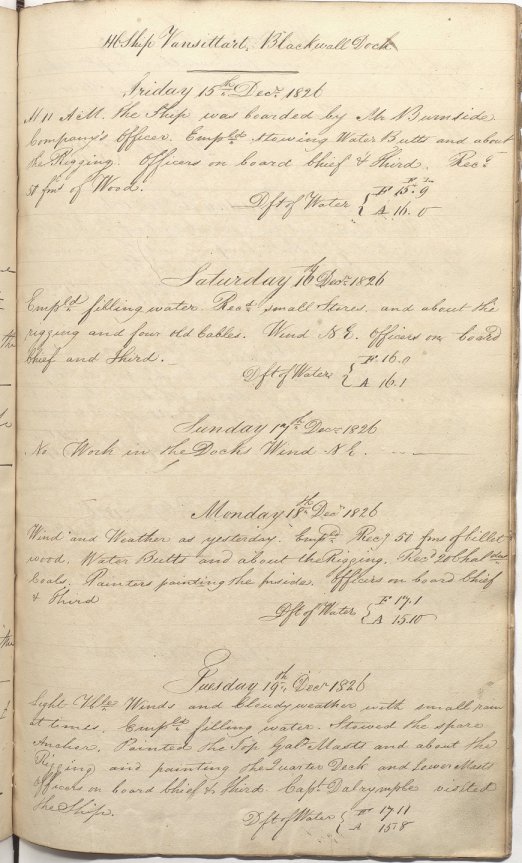 HC Ship Vansittart. Blackwall Dock
Friday 15th Decr. 1826
At 11 AM. the Ship was boarded by Mr Burnside
Company's Officer. Empld. stowing Water Butts and about
the Rigging. Officers on board Chief & Third. Recd.
51 fms of Wood.
Dft of Water { F 15.9
A 16.0
Saturday 16th Decr. 1826
Empld. filling water. Recd. small Stores, and about the
rigging and four old Cables. Wind N E. Officers on board
Chief and Third.
Dft of Water { F 16.0
A 16.1
Sunday 17th Decr. 1826
No Work in the Docks Wind N E.
Monday 18th Decr. 1826
Wind and Weather as yesterday. Empd. Recg. 51 fms of billet
wood, Water Butts and about the Rigging, Recd 20 Chaldns
Coals, Painters painting the inside. Officers on board Chief
& Third
Dft of Water { F 17.1
A 15.10
Tuesday 19th Decr 1826
Light Vble Winds and Cloudy weather with small rain
at times. Empld. filling water. Stowed the spare
Anchor. Painted the Top Galt Masts and about the
Rigging and painting the Quarter Deck and Lower Masts
Officers on board Chief & Third Capt. Dalrymple visited
the Ship.
Dft of Water { F 17 11
A 15 8